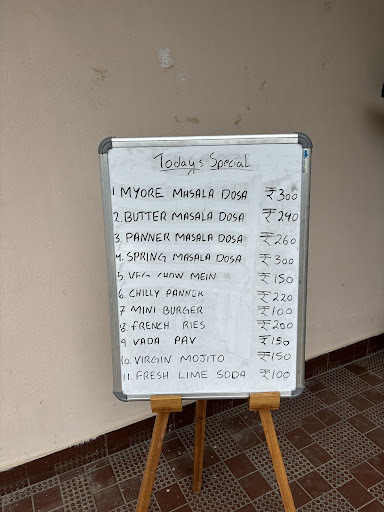 Today's Special
1 MYORE MASALA DOSA ₹300
2. BUTTER MASALA DOSA ₹240
3. PANNER MASALA DOSA ₹260
4. SPRING MASALA DOSA ₹300
5 VEG CHOW MEIN ₹150
6. CHILLY PANNER ₹220
7 MINI BURGER ₹100
8. FRENCH RIES ₹200
9. VADA PAV ₹150
10. VIRGIN MOJITO ₹150
11. FRESH LIME SODA ₹100